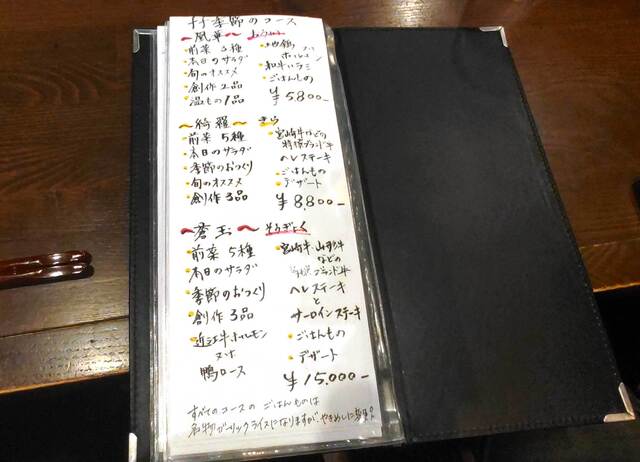 季節のコース
前菜 5種
本日のサラダ
旬のオススメ
創作 2品
温もの 1品
地鶏
和牛ハラミ
ごはんもの
¥5800-
~綺羅~ きら
前菜 5種
本日のサラダ
季節のおつくり
旬のオススメ
創作 3品
宮崎牛などの
特撰ブランド牛
ヘレステーキ
ごはんもの
デザート
¥8,800-
~蒼玉~ そうぎょく
前菜 5種
本日のサラダ
季節のおつくり
創作 3品
近江牛ホルモン
鴨ロース
宮崎牛、山形牛
などの
ブランド牛
ヘレステーキ
と
サーロインステーキ
ごはんもの
デザート
¥15,000-
すべてのコースの ごはんものは
名物ガーリックライスになりますが、やきめしに